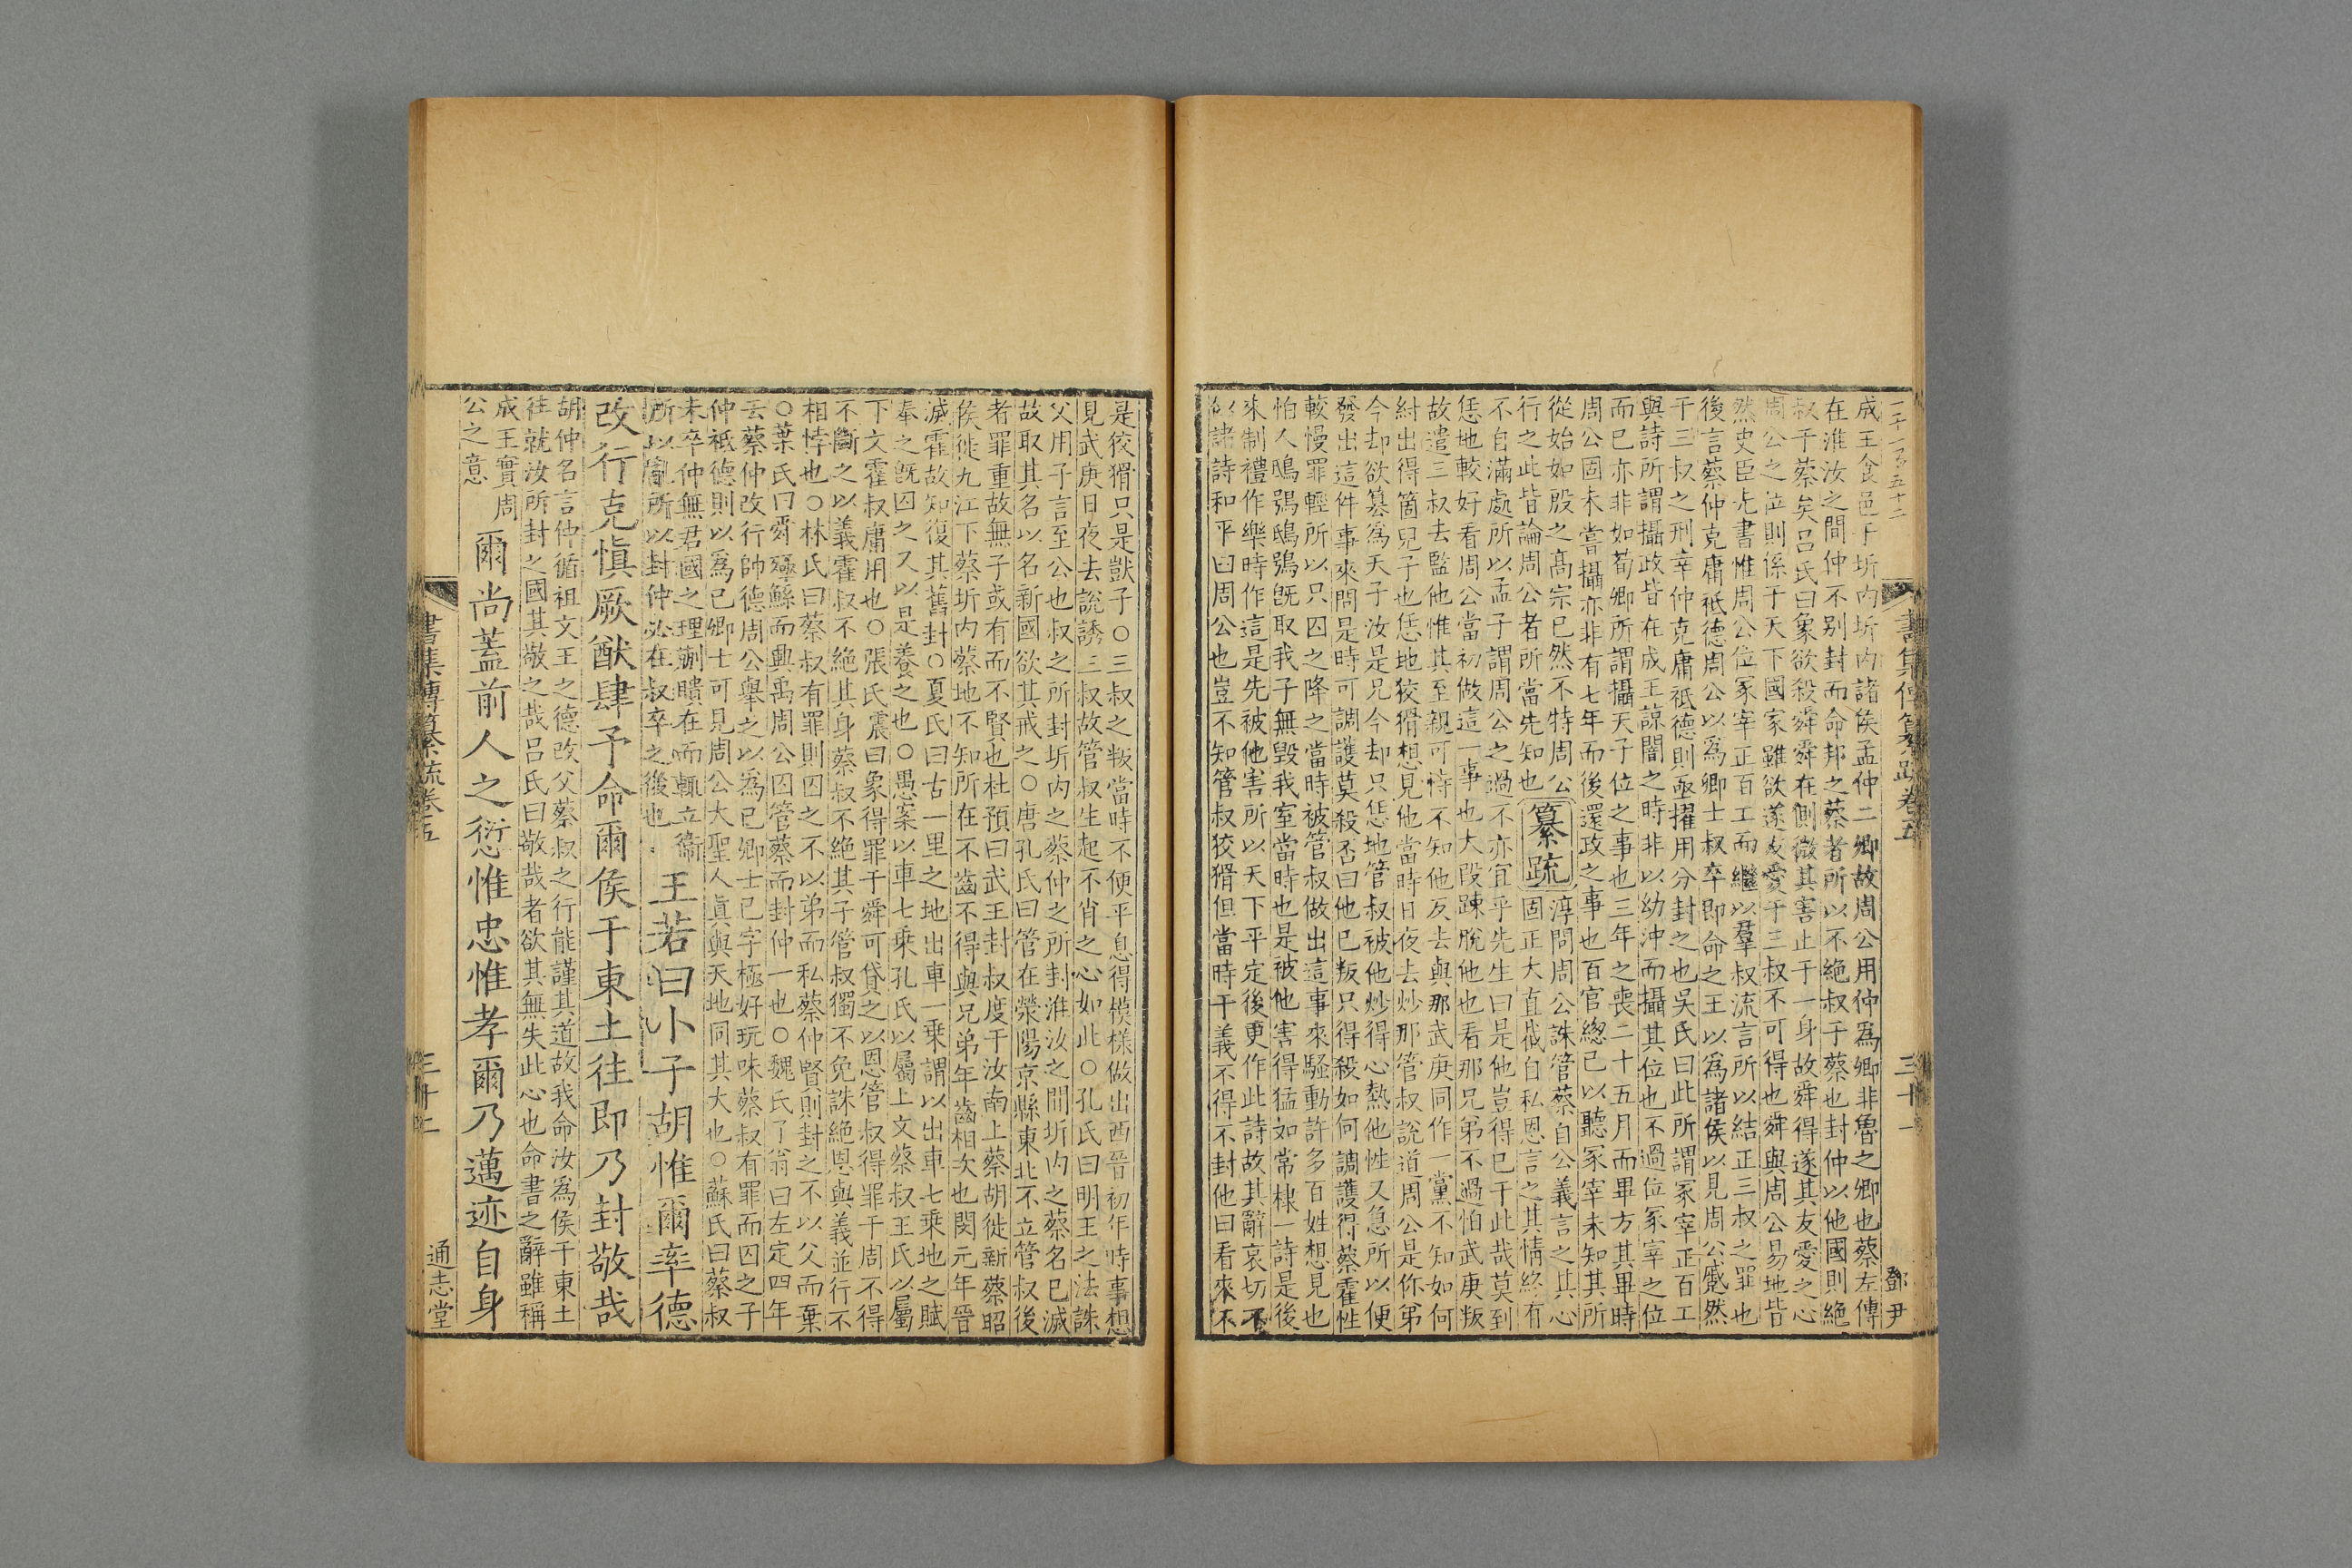 一千一百五十二
書集傳纂疏卷五
三十一
鄧尹
成王食邑于圻内圻内諸侯孟仲二卿故周公用仲爲卿非魯之卿也蔡左傳
在淮汝之間仲不别封而命邦之蔡者所以不絶叔于蔡也封仲以他國則絶
叔于蔡矣吕氏曰象欲殺舜舜在側微其害止于一身故舜得遂其友愛之心
周公之位則係于天下國家雖欲遂友愛于三叔不可得也舜與周公易地皆
然史臣先書惟周公位冢宰正百工而繼以羣叔流言所以結正三叔之罪也
後言蔡仲克庸祗德周公以爲卿士叔卒即命之王以爲諸侯以見周公蹙然
于三叔之刑幸仲克庸祗德則亟擢用分封之也吳氏曰此所謂冢宰正百工
與詩所謂攝政皆在成王諒闇之時非以幼沖而攝其位也不過位冢宰之位
而已亦非如荀卿所謂攝天子位之事也三年之喪二十五月而畢方其畢時
周公固未嘗攝亦非有七年而後還政之事也百官總已以聽冢宰未知其所
從始如殷之高宗已然不特周公
行之此皆論周公者所當先知也
纂疏
淳問周公誅管蔡自公義言之其心
固正大直截自私恩言之其情終有
不自滿處所以孟子謂周公之過不亦宜乎先生曰是他豈得已于此哉莫到
恁地較好看周公當初做這一事也大段踈脫他也看那兄弟不過怕武庚叛
故遣三叔去監他惟其至親可恃不知他反去與那武庚同作一黨不知如何
紂出得箇兒子也恁地狡猾想見他當時日夜去炒那管叔說道周公是你弟
今却欲簒爲天子汝是兄今却只恁地管叔被他炒得心熱他性又急所以便
發出這件事來問是時可調護莫殺否曰他已叛只得殺如何調護得蔡霍性
較慢罪輕所以只囚之降之當時被管叔做出這事來騷動許多百姓想見也
怕人鴟鴞鴟鴞旣取我子無毁我室當時也是被他害得猛如常棣一詩是後
來制禮作樂時作這是先被他害所以天下平定後更作此詩故其辭哀切不
似諸詩和平曰周公也豈不知管叔狡猾但當時于義不得不封他曰看來不
是狡猾只是獃子○三叔之叛當時不便平息得模樣做出西晉初年時事想
見武庚日夜去說誘三叔故管叔生起不肖之心如此○孔氏曰明王之法誅
父用子言至公也叔之所封圻内之蔡仲之所封淮汝之間圻内之蔡名已滅
故取其名以名新國欲其戒之○唐孔氏曰管在滎陽京縣東北不立管叔後
者罪重故無子或有而不賢也杜預曰武王封叔度于汝南上蔡胡徙新蔡昭
侯徙九江下蔡圻内蔡地不知所在不齒不得與兄弟年齒相次也閔元年晉
滅霍故知復其舊封○夏氏曰古一里之地出車一乘謂以出車七乘地之賦
奉之旣囚之又以是養之也○愚案以車七乘孔氏以屬上文蔡叔王氏以屬
下文霍叔庸用也○張氏震曰象得罪于舜可貸之以恩管叔得罪于周不得
不斷之以義霍叔不絶其身蔡叔不絶其子管叔獨不免誅絶恩與義並行不
相悖也○林氏曰蔡叔有罪則囚之不以弟而私蔡仲賢則封之不以父而棄
○葉氏曰舜殛鯀而興禹周公囚管蔡而封仲一也○魏氏了翁曰左定四年
云蔡仲改行帥德周公舉之以爲已卿士已字極好玩味蔡叔有罪而囚之子
仲祗德則以爲已卿士可見周公大聖人眞與天地同其大也○蘇氏曰蔡叔
未卒仲無君國之理蒯聵在而輒立衞
所以亂所以封仲必在叔卒之後也
王若曰小子胡惟爾率德
改行克愼厥猷肆予命爾侯于東土往即乃封敬哉
胡仲名言仲循祖文王之德改父蔡叔之行能謹其道故我命汝爲侯于東土
往就汝所封之國其敬之哉吕氏曰敬哉者欲其無失此心也命書之辭雖稱
成王實周
公之意
爾尚蓋前人之愆惟忠惟孝爾乃邁迹自身
書集傳纂疏卷五
三十二
通志堂